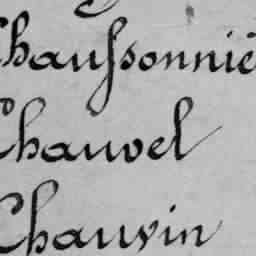 Chaussonniè
Chauvel
Chauvin